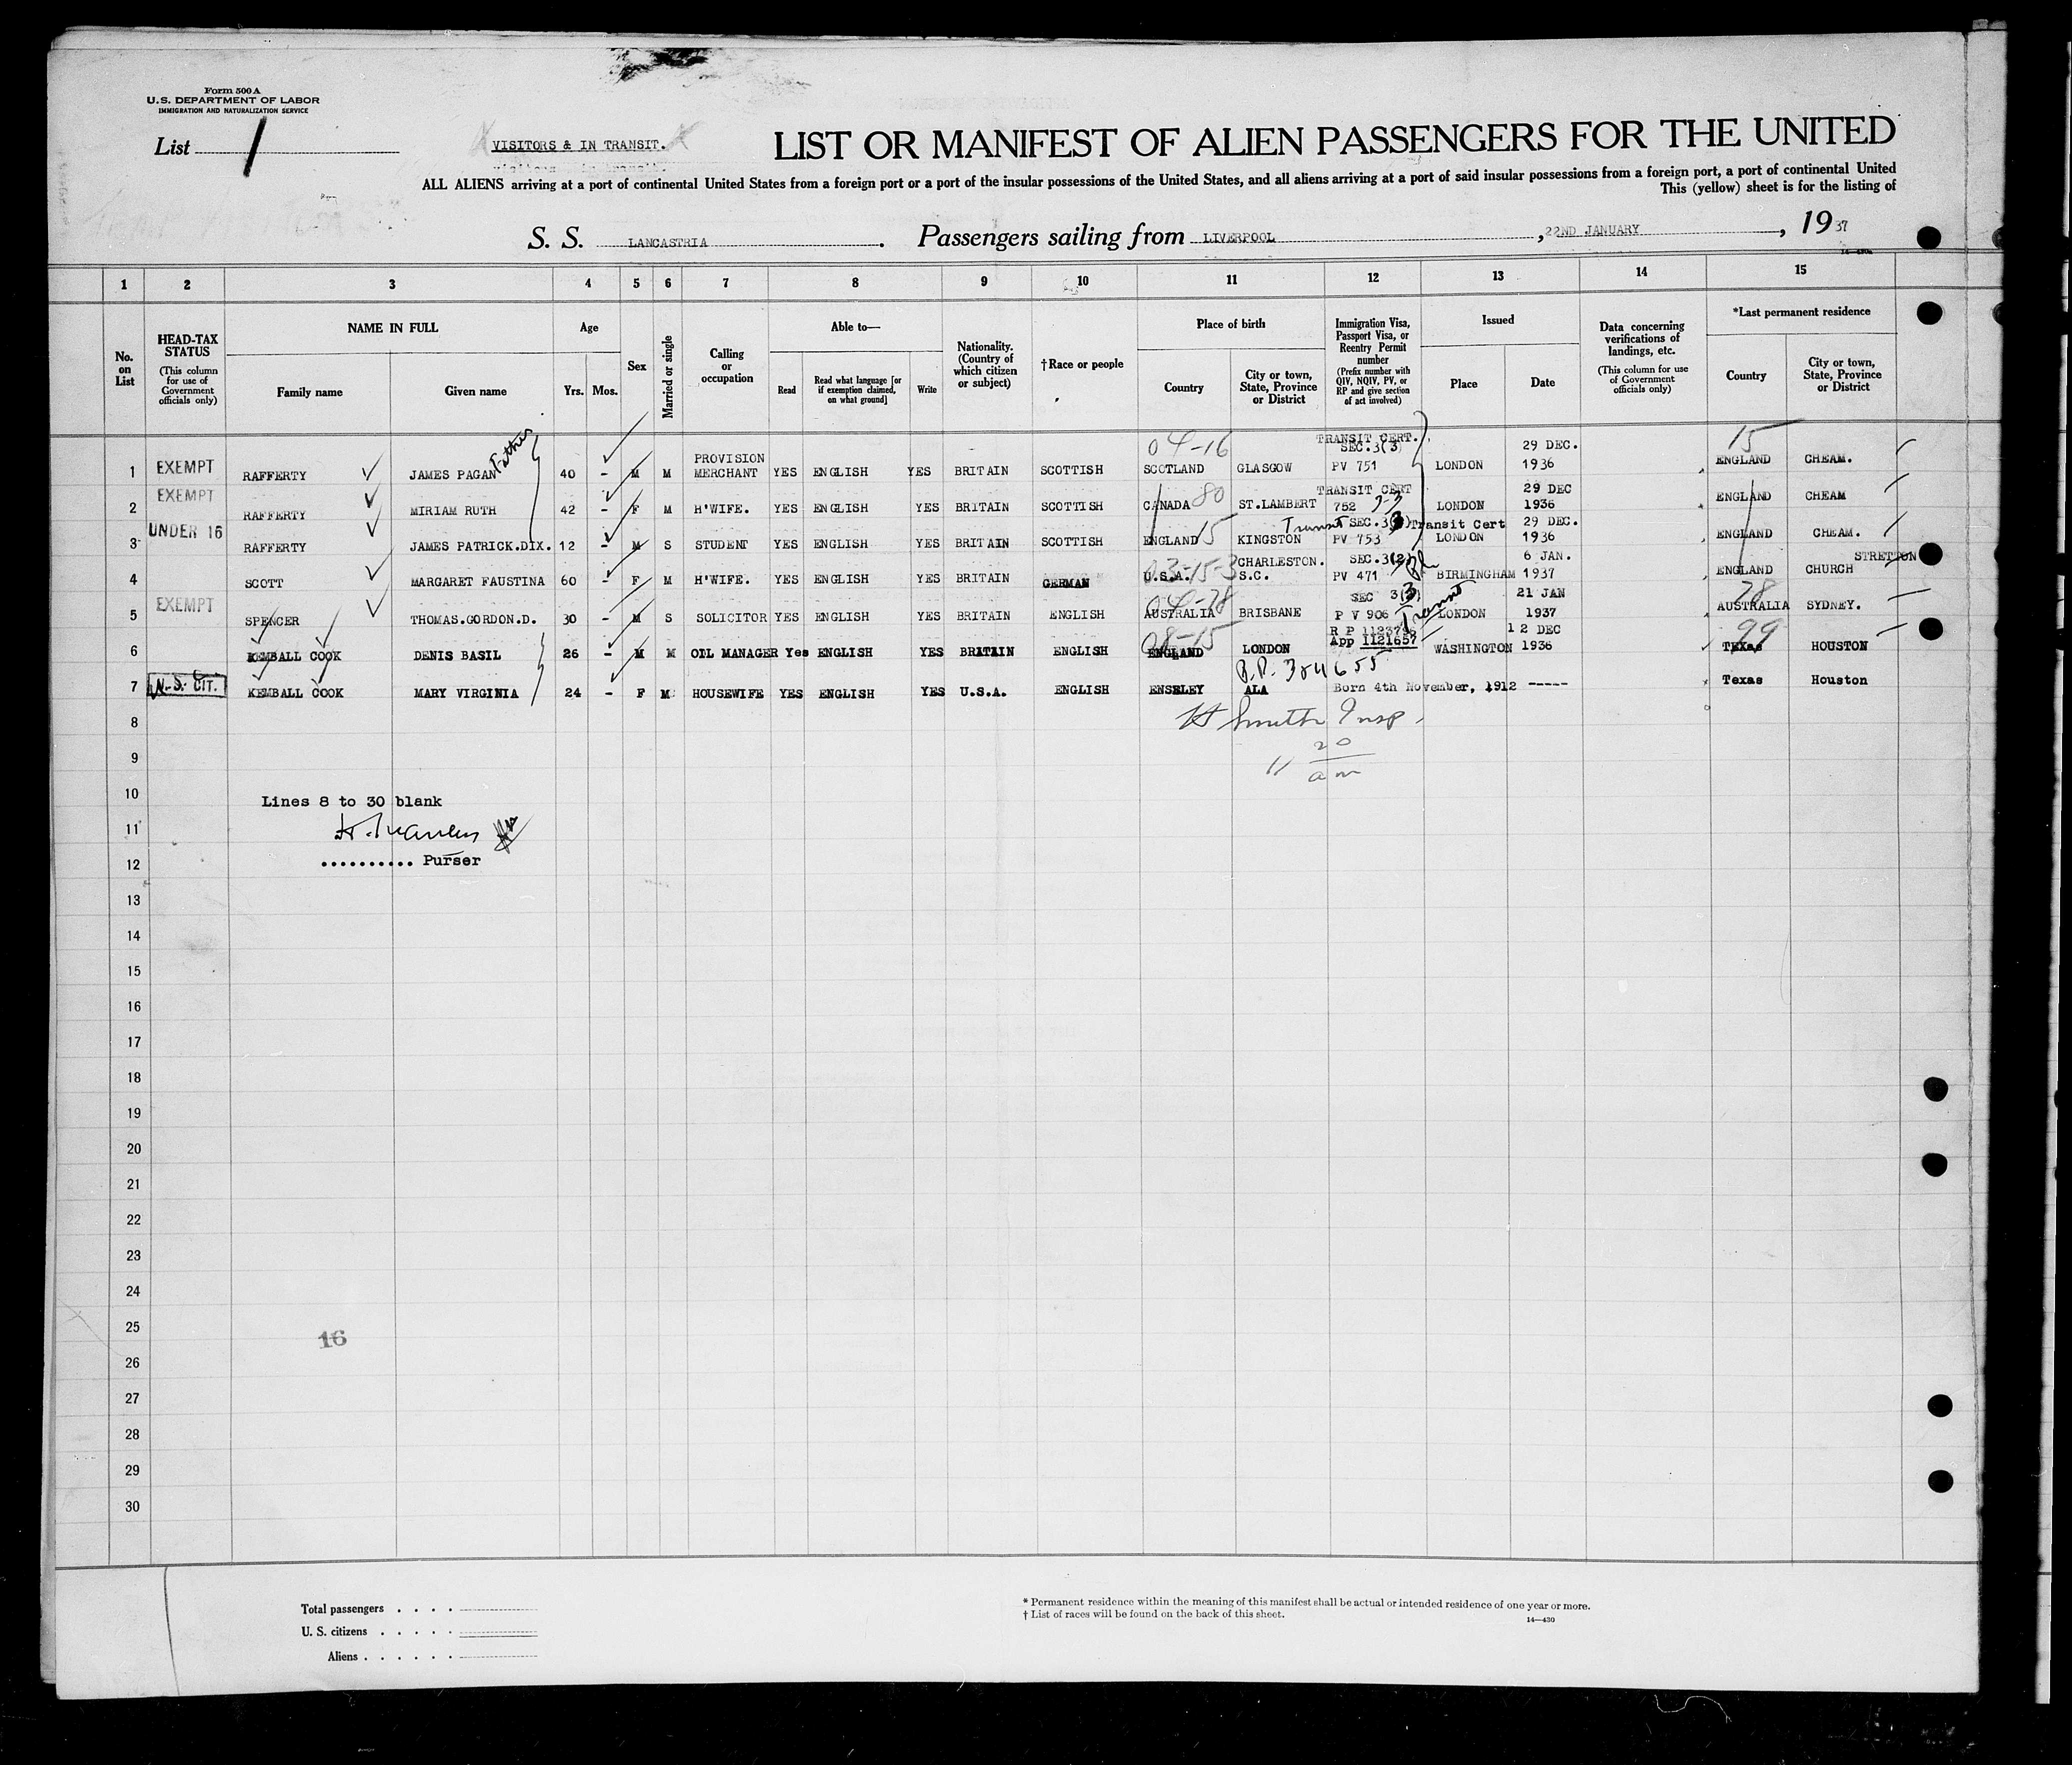 Form 500 A
U.S. DEPARTMENT OF LABOR
IMMIGRATION AND NATURALIZATION SERVICE
List 1
VISITORS & IN TRANSIT.
LIST OR MANIFEST OF ALIEN PASSENGERS FOR THE UNITED
ALL ALIENS arriving at a port of continental United States from a foreign port or a port of the insular possessions of the United States, and all aliens arriving at a port of said insular possessions from a foreign port, a port of continental United
This (yellow) sheet is for the listing of
S. S. LANCASTRIA. Passengers sailing from LIVERPOOL, 22ND JANUARY, 1937
1 2 3 4 5 6 7 8 9 10 11 12 13 14 15
No. on List
HEAD-TAX STATUS (This column for use of Government officials only)
NAME IN FULL Family name Given name
Age Yrs. Mos.
Sex
Married or single
Calling or occupation
Able to— Read Read what language [or if exemption claimed, on what ground] Write
Nationality. (Country of which citizen or subject)
†Race or people
Place of birth Country City or town, State, Province or District
Immigration Visa, Passport Visa, or Reentry Permit number (Prefix number with QIV, NQIV, PV, or RP and give section of act involved)
Issued Place Date
Data concerning verifications of landings, etc. (This column for use of Government officials only)
*Last permanent residence Country City or town, State, Province or District
04-16 TRANSIT CERT. 15
PROVISION SEC.3(3) 29 DEC.
1 EXEMPT RAFFERTY JAMES PAGAN Father 40 - M M MERCHANT YES ENGLISH YES BRITAIN SCOTTISH SCOTLAND GLASGOW PV 751 LONDON 1936 ENGLAND CHEAM.
80 TRANSIT CERT 29 DEC
2 EXEMPT RAFFERTY MIRIAM RUTH 42 - F M H'WIFE. YES ENGLISH YES BRITAIN SCOTTISH CANADA ST.LAMBERT 752 LONDON 1936 ENGLAND CHEAM
15 Transit SEC.3(3) Transit Cert 29 DEC.
3 UNDER 16 RAFFERTY JAMES PATRICK.DIX. 12 - M S STUDENT YES ENGLISH YES BRITAIN SCOTTISH ENGLAND KINGSTON PV 753 LONDON 1936 ENGLAND CHEAM.
03-15-3 CHARLESTON. SEC.3(2) 6 JAN. STRETTON
4 SCOTT MARGARET FAUSTINA 60 - F M H'WIFE. YES ENGLISH YES BRITAIN GERMAN U.S.A. S.C. PV 471 BIRMINGHAM 1937 ENGLAND CHURCH
04-78 SEC 3(3) Transit 21 JAN 78
5 EXEMPT SPENCER THOMAS.GORDON.D. 30 - M S SOLICITOR YES ENGLISH YES BRITAIN ENGLISH AUSTRALIA BRISBANE P V 906 LONDON 1937 AUSTRALIA SYDNEY.
08-15 R P 12 DEC 99
6 KEMBALL COOK DENIS BASIL 26 - M M OIL MANAGER Yes ENGLISH YES BRITAIN ENGLISH ENGLAND LONDON App 1121657 WASHINGTON 1936 TExas HOUSTON
384655
7 U.S. CIT. KEMBALL COOK MARY VIRGINIA 24 - F M HOUSEWIFE YES ENGLISH YES U.S.A. ENGLISH ENSELEY ALA Born 4th November, 1912 ----- Texas Houston
8
Smith Insp.
9
11 20 am
10
Lines 8 to 30 blank
11
12
.......... Purser
13
14
15
16
17
18
19
20
21
22
23
24
25
16
26
27
28
29
30
Total passengers . . . .
U. S. citizens . . . . .
Aliens . . . . . .
* Permanent residence within the meaning of this manifest shall be actual or intended residence of one year or more.
† List of races will be found on the back of this sheet.
14—430